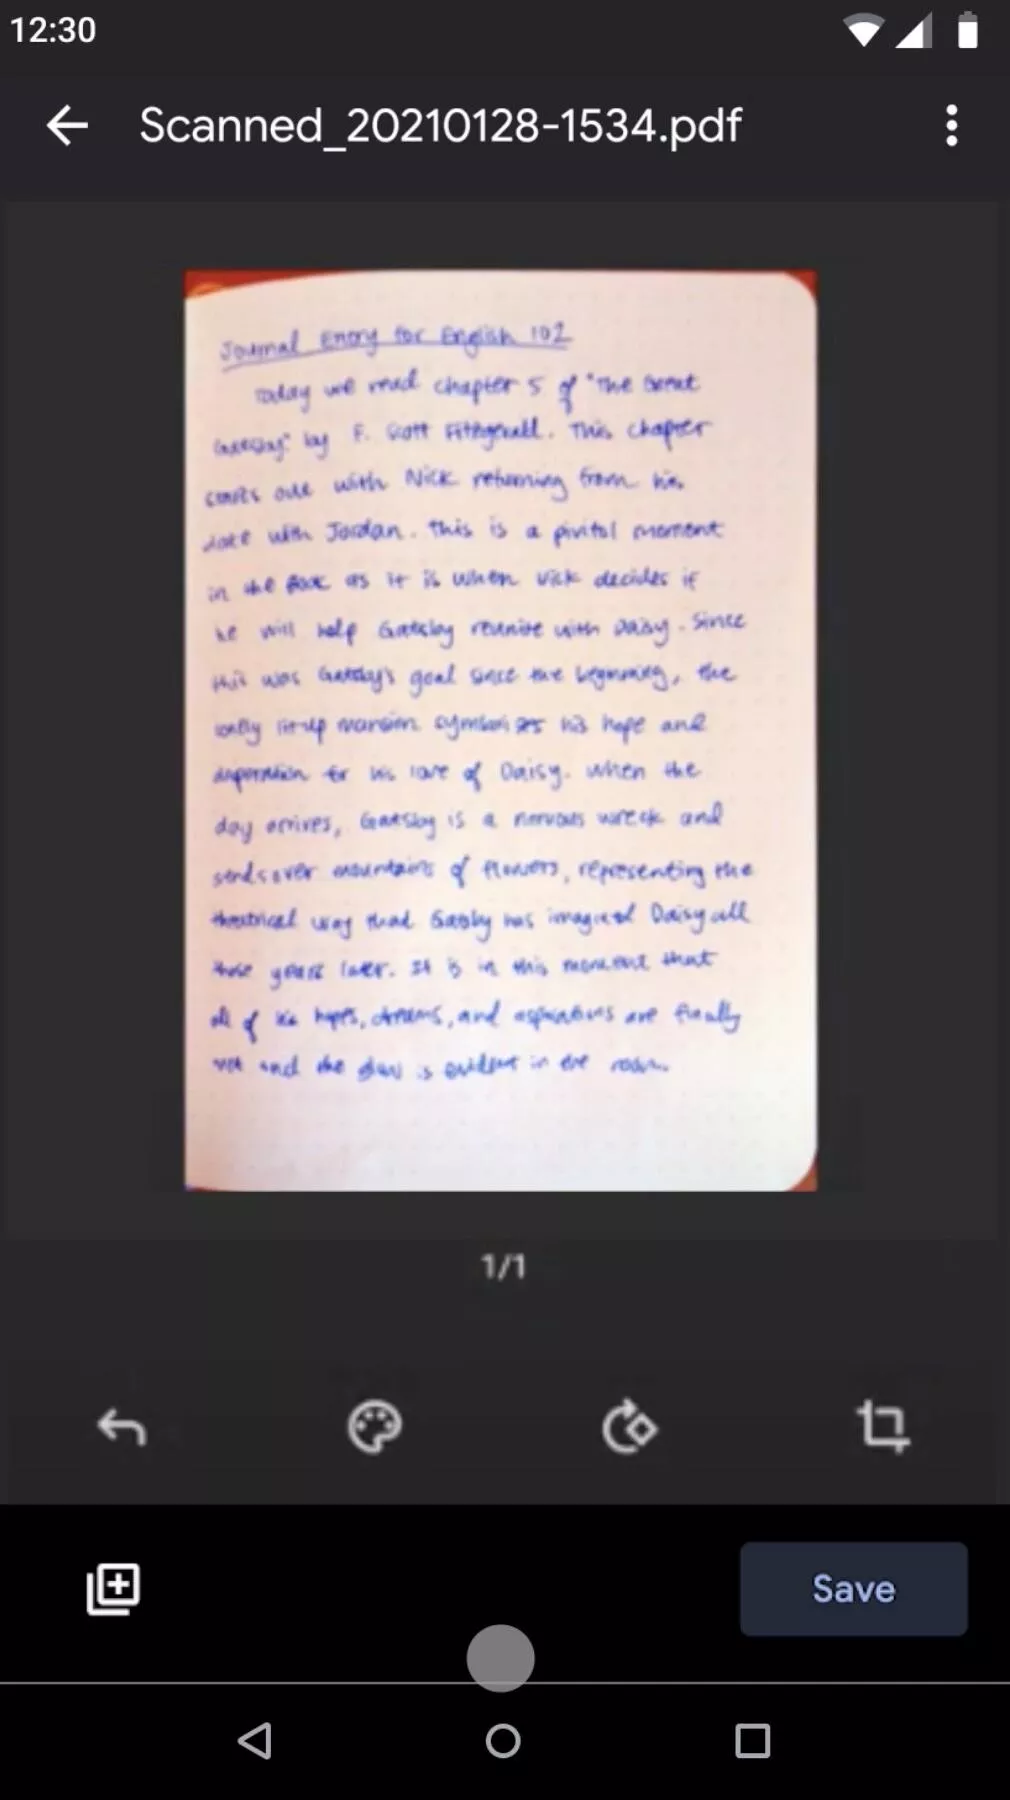 12:30
Scanned_20210128-1534.pdf
Journal Entry for English 102
Today we read chapter 5 of "The Great
Gatsby" by F. Scott Fitzgerald. This chapter
starts out with Nick returning from his
date with Jordan. This is a pivitol moment
in the book as it is when Nick decides if
he will help Gatsby reunite with Daisy. Since
this was Gatsby's goal since the beginning, the
lit-up mansion symbolizes his hope and
for his love of Daisy. When the
day arrives, Gatsby is a nervous wreck and
sends over mountains of flowers, representing the
theatrical way that Gatsby has imagined Daisy all
those years later. It is in this moment that
all of his hopes, dreams, and aspirations are finally
met and the is evident in the room.
1/1
Save